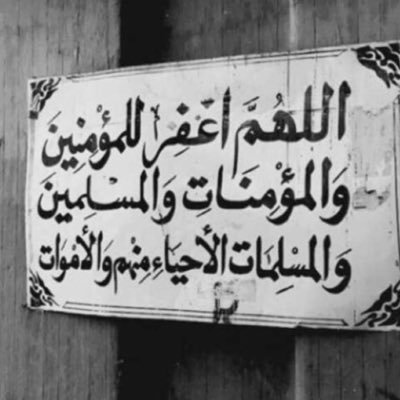 اللهُمَّ اغْفِرْ للمؤْمِنِينَ
وَالمؤْمِنَاتِ وَالمسْلِمِينَ
وَالمسْلِمَاتِ الأحيَاءِ مِنهُم وَالأموَات